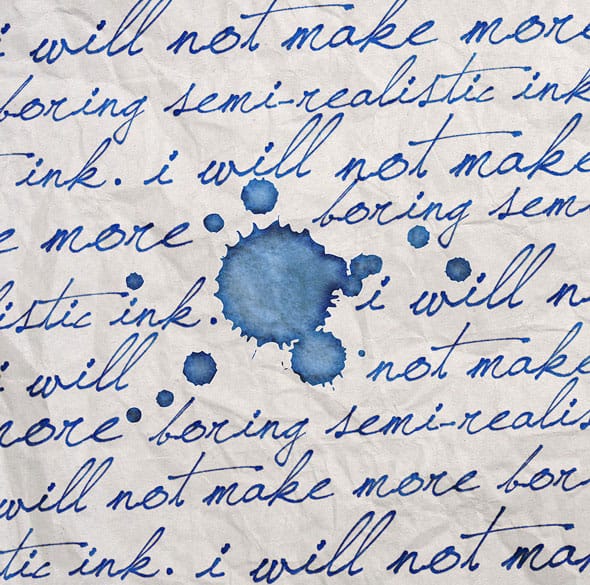 i will not make more
boring semi-realistic ink
ink. i will not make
boring semi
more
istic ink. i will n
i will not make
more boring semi-realis
will not make more bor
tic ink. i will not mak